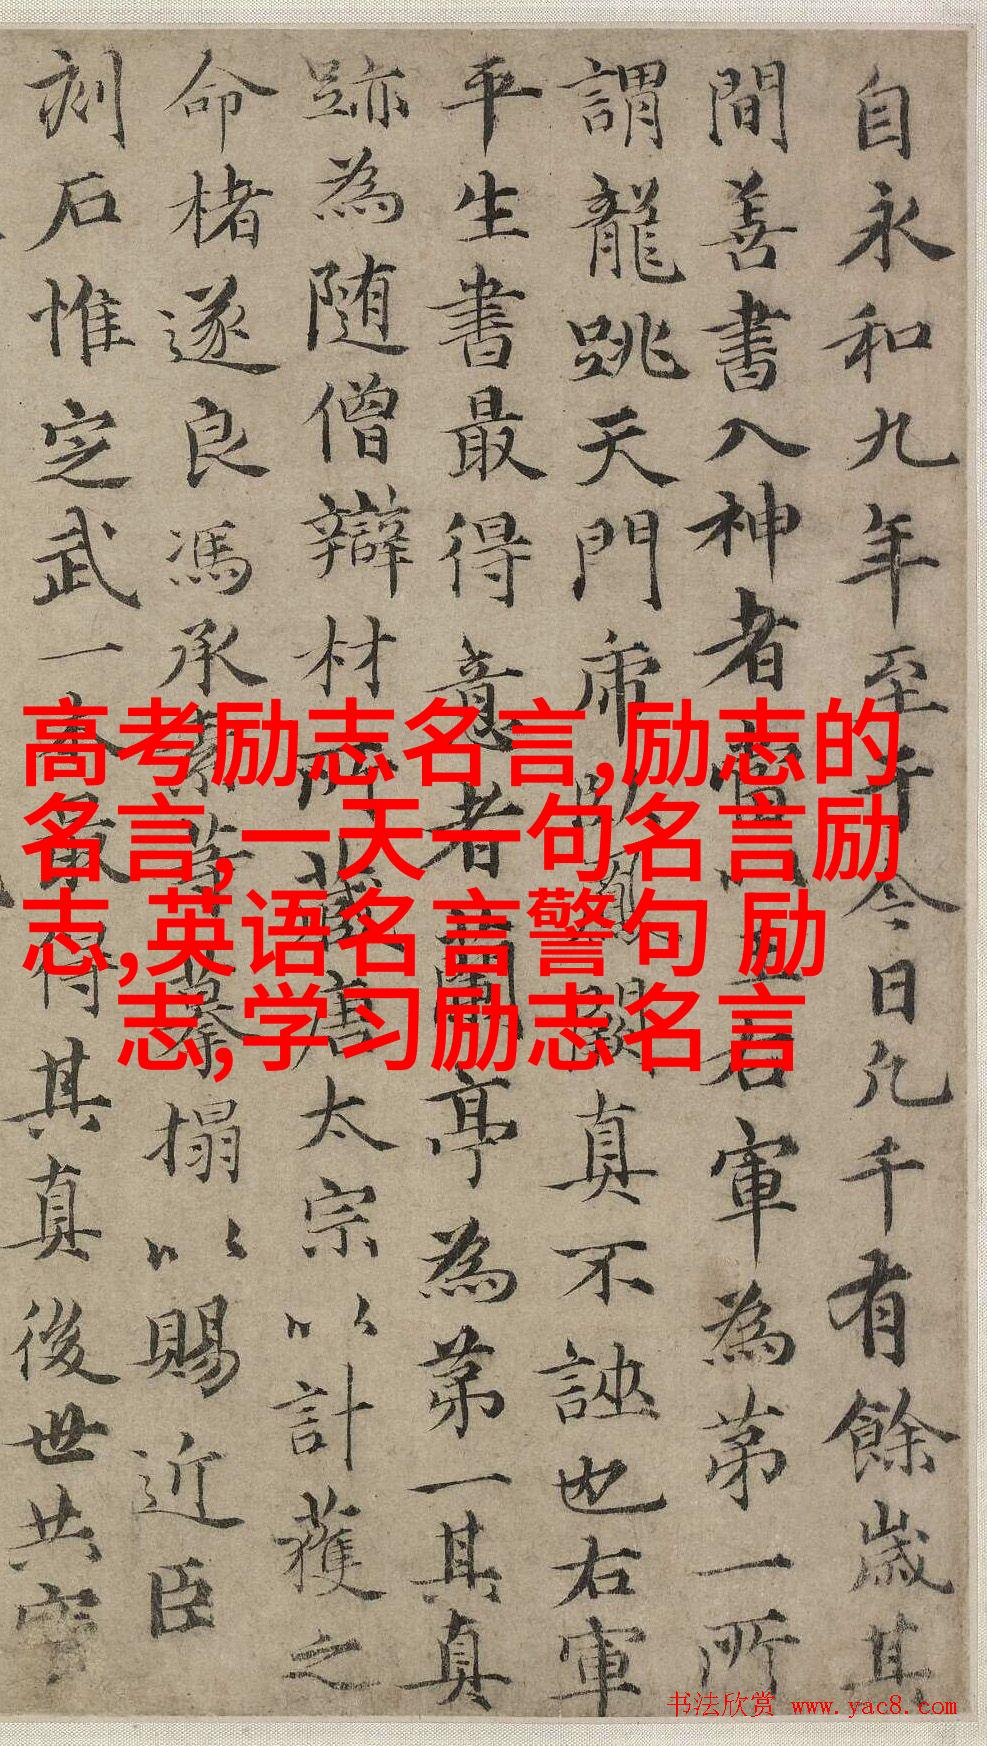 自永和九年至于今日凡千有餘歲其
間善書入神者當以王右軍為第一所
謂龍跳天門虎臥鳳閣真不誣也右軍
平生書最得意者蘭亭為第一其真
跡為随僧辯材所藏唐太宗以計獲之
命楮遂良馮承素等摹搨以賜近臣
刻石惟定武一本最得其真後世共寶
高考励志名言,励志的
名言,一天一句名言励
志,英语名言警句 励
志,学习励志名言
书法欣赏 www.yac8.com